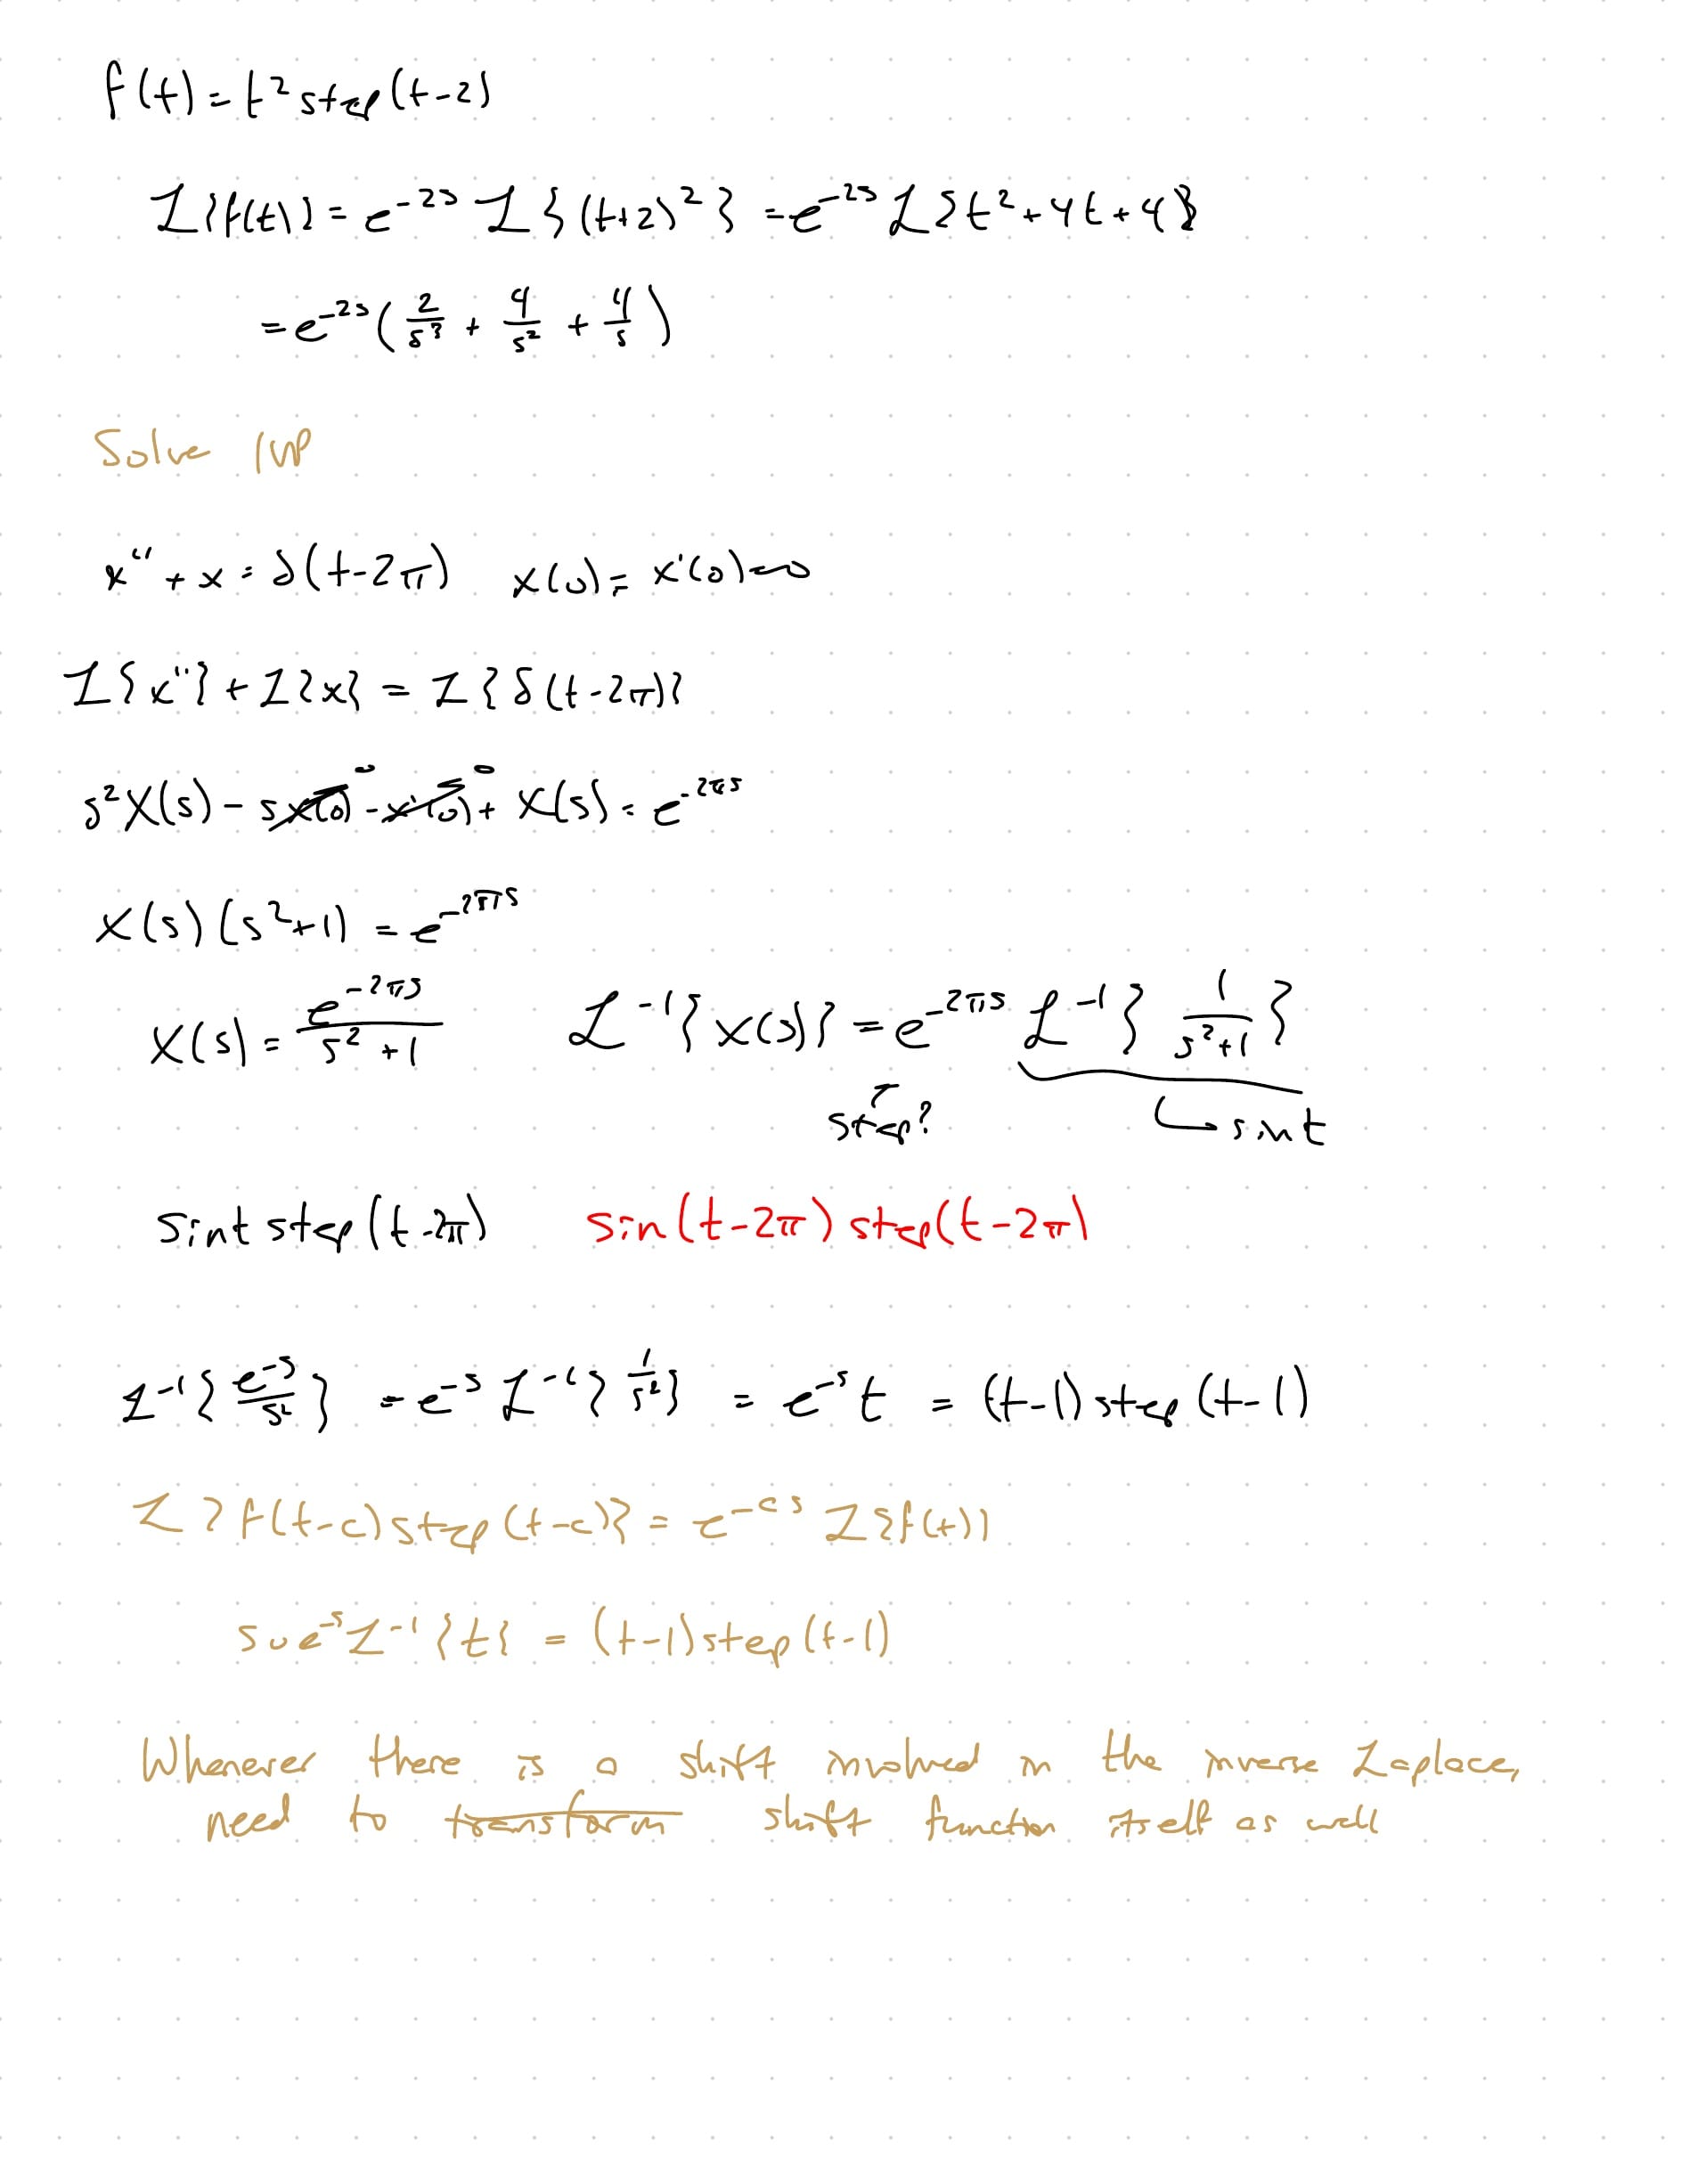 f(t) = t² step(t-2)
ℒ{f(t)} = e^{-2s} ℒ{(t+2)²} = e^{-2s} ℒ{t²+4t+4}
= e^{-2s}(2/s³ + 4/s² + 4/s)
Solve IVP
x'' + x = δ(t-2π) x(0) = x'(0) = 0
ℒ{x''} + ℒ{x} = ℒ{δ(t-2π)}
s²X(s) - sx(0)⁰ - x'(0)⁰ + X(s) = e^{-2πs}
X(s)(s²+1) = e^{-2πs}
X(s) = e^{-2πs}/(s²+1) ℒ⁻¹{X(s)} = e^{-2πs} ℒ⁻¹{1/(s²+1)}
step? ↳ sint
sint step(t-2π) sin(t-2π) step(t-2π)
ℒ⁻¹{e^{-s}/s²} = e^{-s} ℒ⁻¹{1/s²} = e^{-s}t = (t-1) step(t-1)
ℒ{f(t-c) step(t-c)} = e^{-cs} ℒ{f(t)}
so e^{-s} ℒ⁻¹{t} = (t-1) step(t-1)
Whenever there is a shift involved in the inverse Laplace,
need to transform shift function itself as well